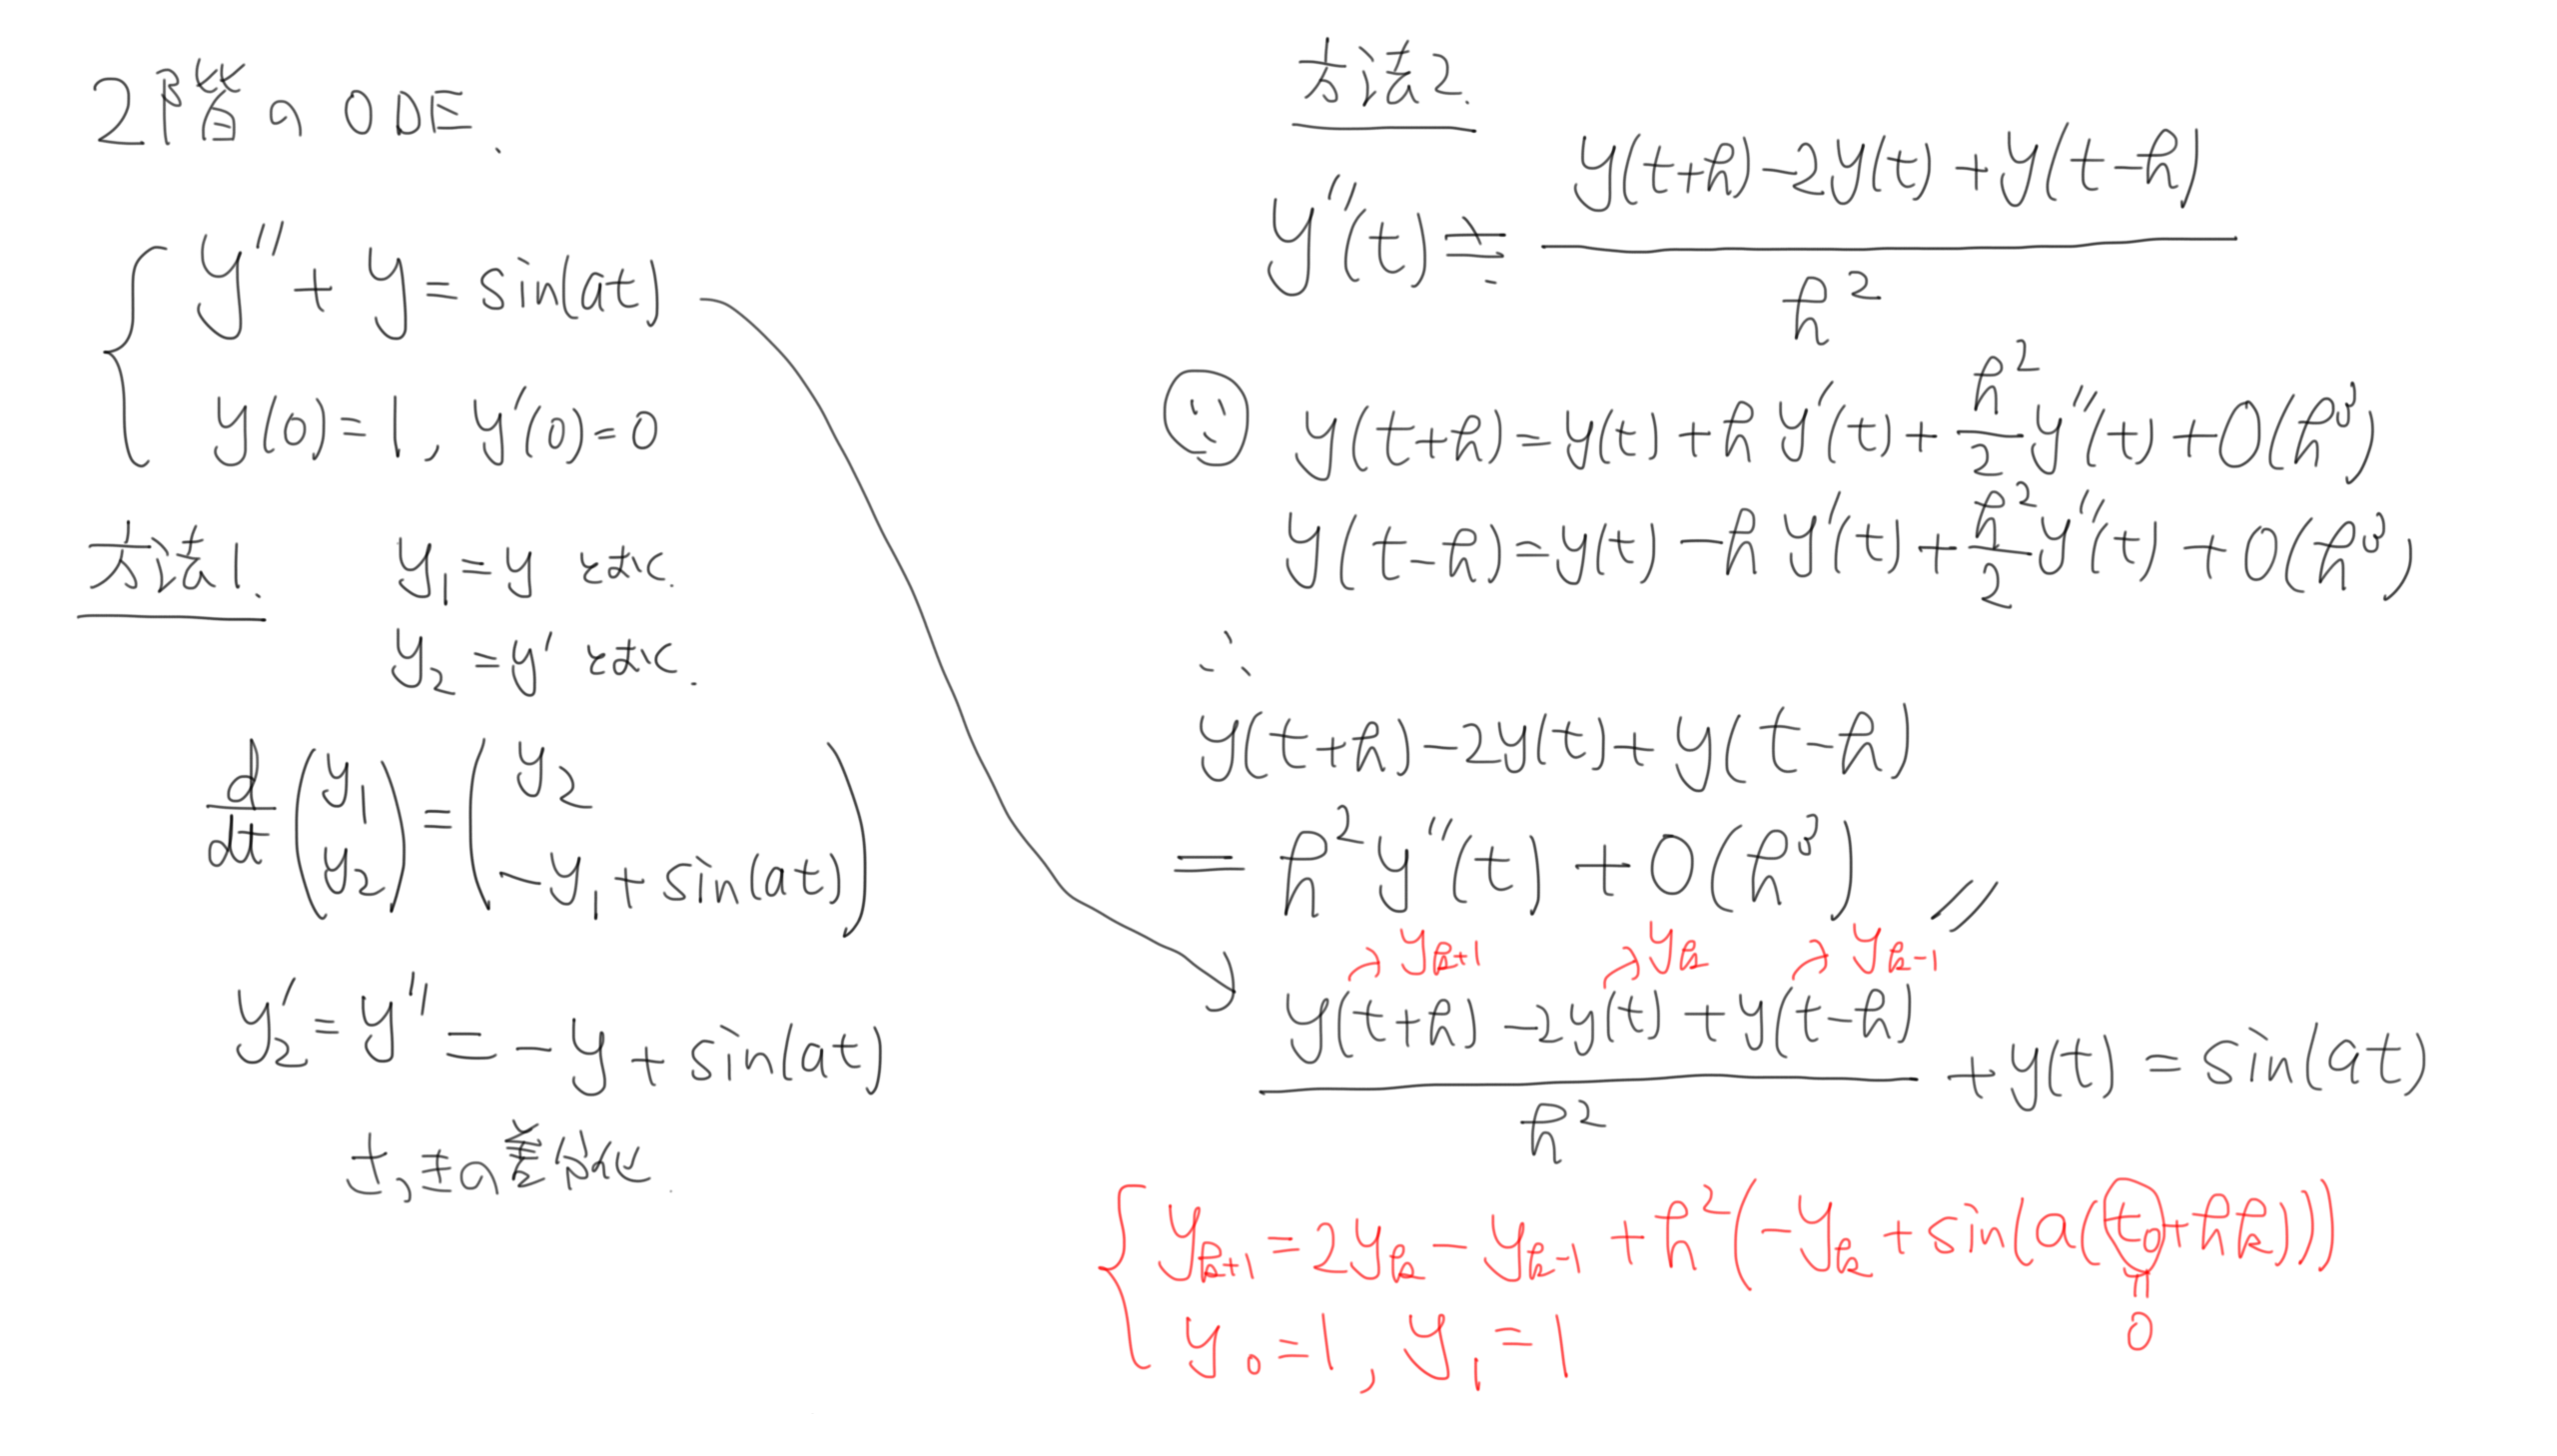 2階の ODE.
y'' + y = sin(at)
y(0) = 1, y'(0) = 0
方法1. y₁ = y とおく.
y₂ = y' とおく.
d/dt (y₁ y₂) = (y₂ -y₁ + sin(at))
y₂' = y'' = -y + sin(at)
の差分化.
方法2.
y''(t) ≒ (y(t+h) - 2y(t) + y(t-h)) / h²
∵ y(t+h) = y(t) + h y'(t) + h²/2 y''(t) + O(h³)
y(t-h) = y(t) - h y'(t) + h²/2 y''(t) + O(h³)
∴
y(t+h) - 2y(t) + y(t-h)
= h² y''(t) + O(h³) //
y_{k+1} y_k y_{k-1}
(y(t+h) - 2y(t) + y(t-h)) / h² + y(t) = sin(at)
y_{k+1} = 2y_k - y_{k-1} + h²(-y_k + sin(a(t₀+hk)))
y₀ = 1, y₁ = 1
0